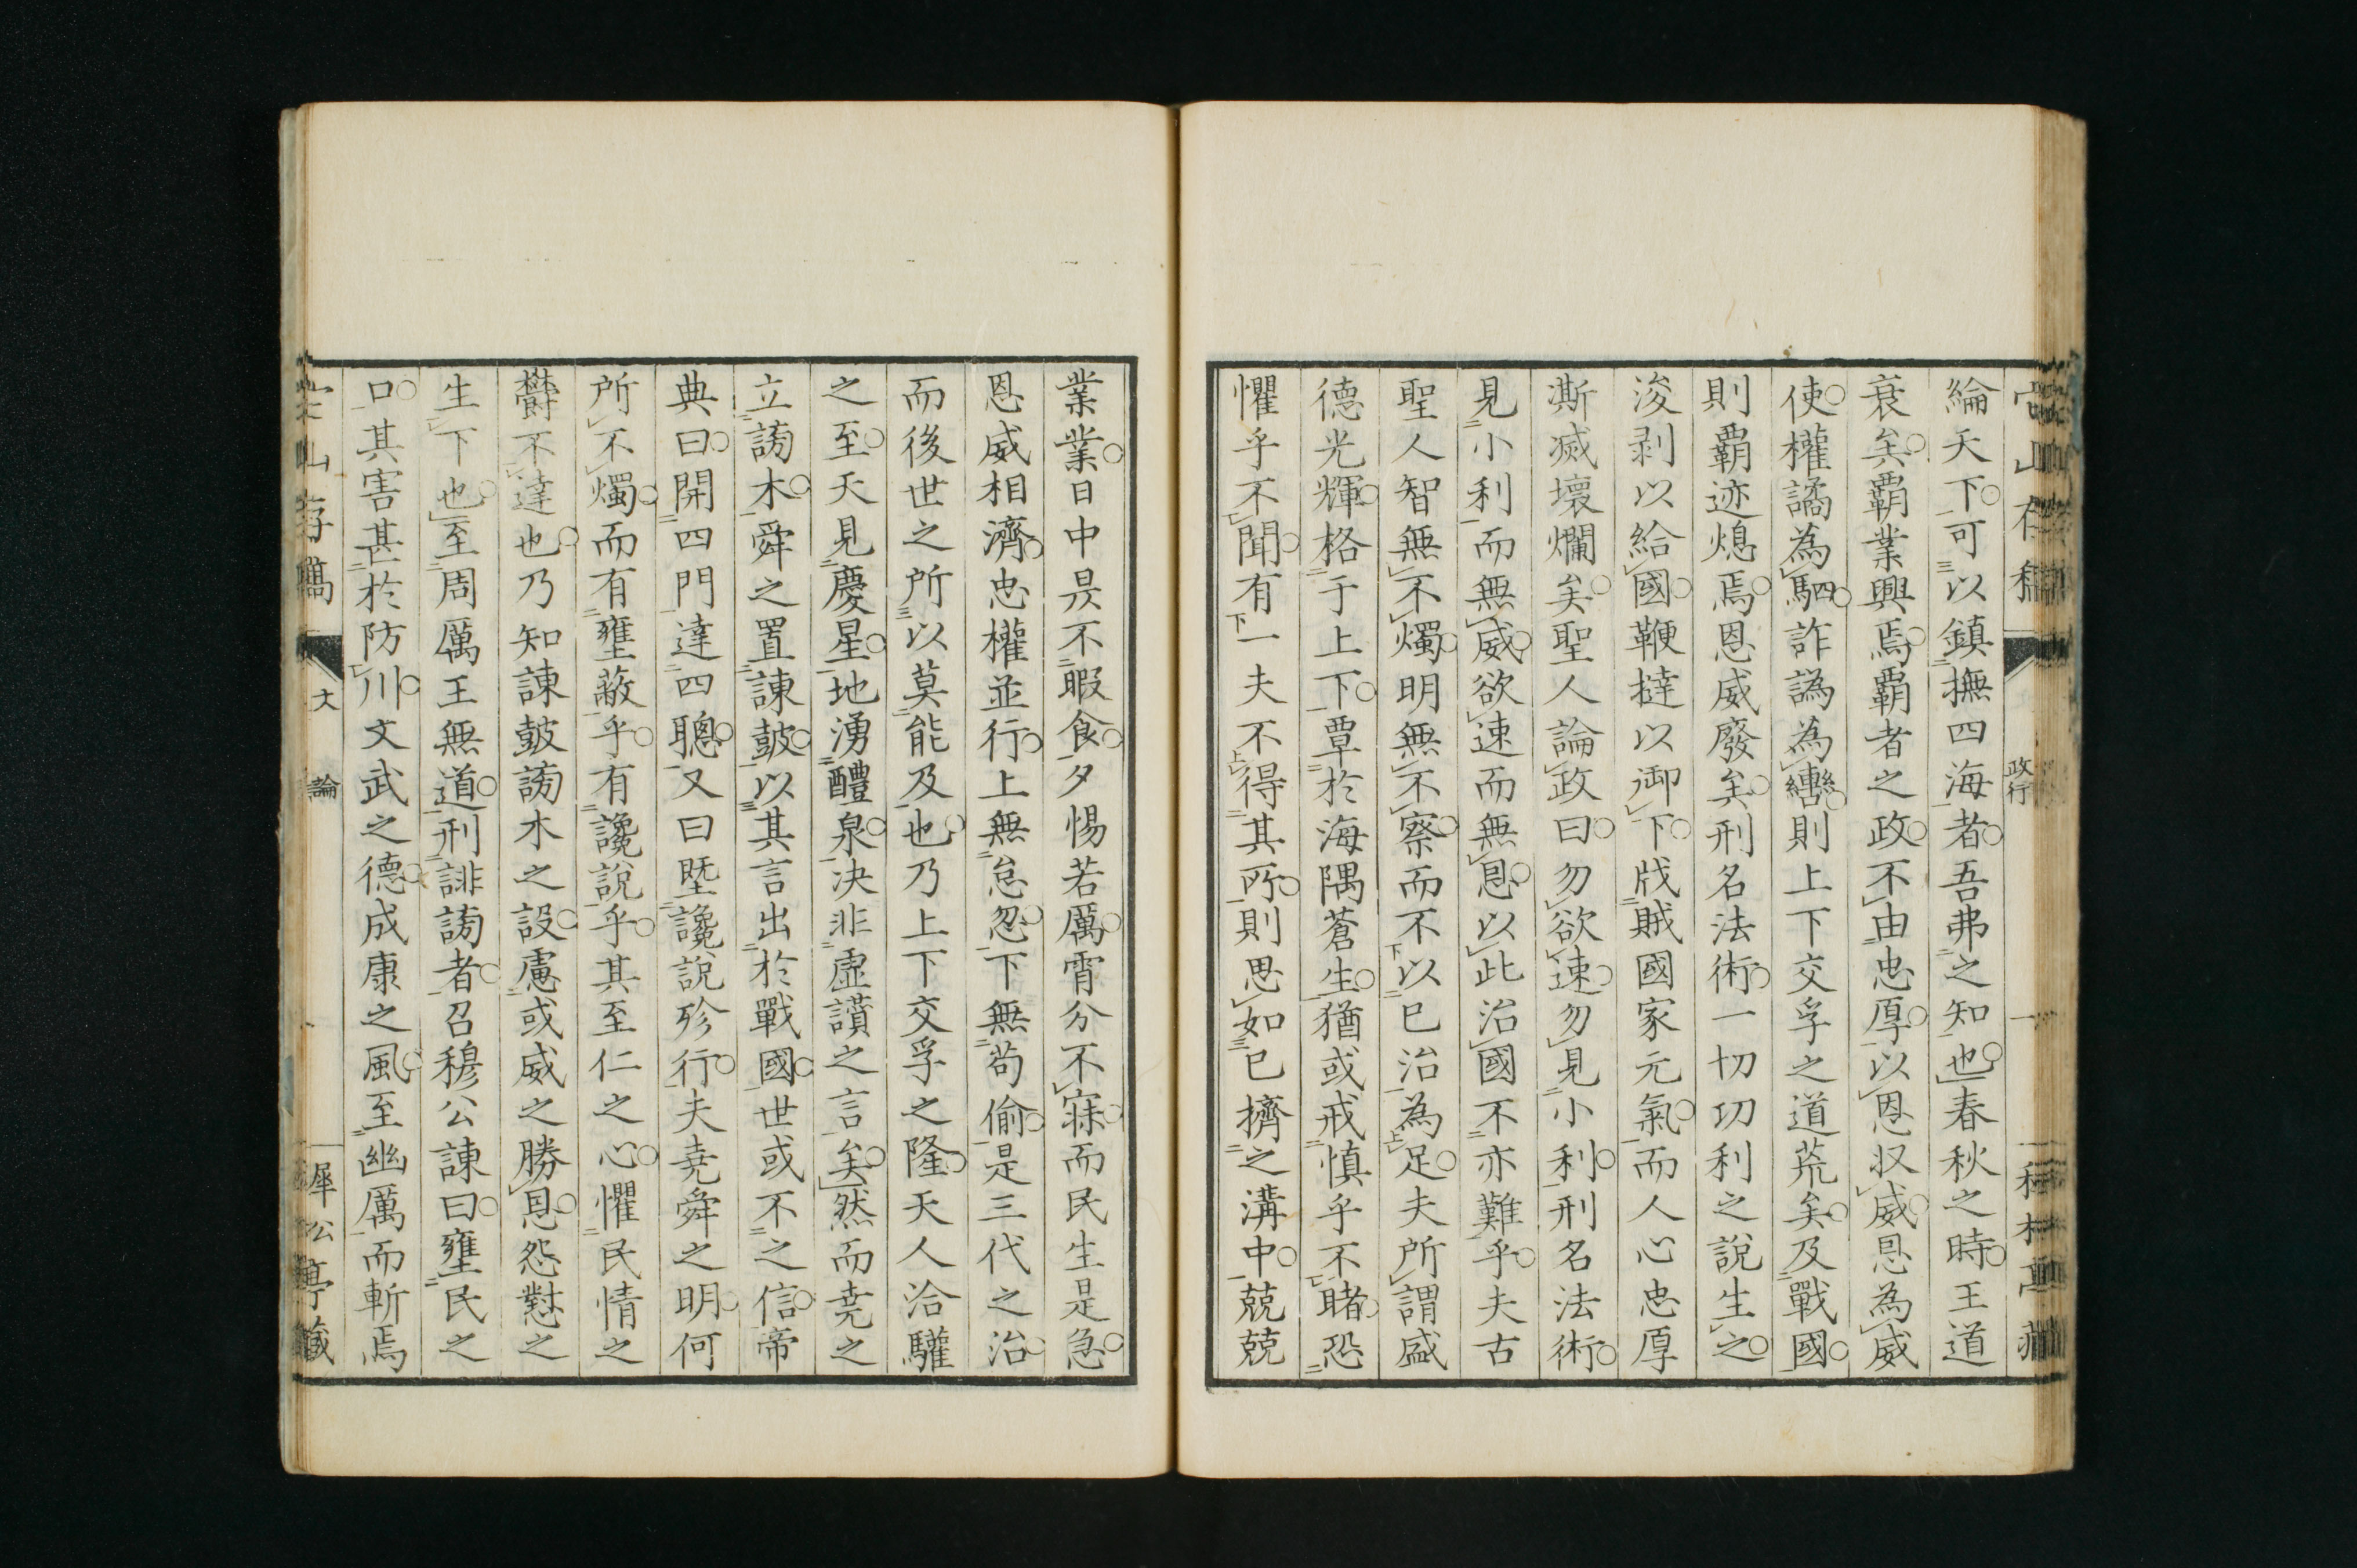 綸天下可以鎮撫四海者吾弗之知也春秋之時王道
衰矣覇業興焉覇者之政不由忠厚以恩収威恩為威
使權譎為駟詐譌為轡則上下交孚之道荒矣及戰國
則覇迹熄焉恩威廢矣刑名法術一切功利之說生之
浚剥以給國鞭撻以御下戕賊國家元氣而人心忠厚
澌滅壞爛矣聖人論政曰勿欲速勿見小利刑名法術
見小利而無威欲速而無恩以此治國不亦難乎夫古
聖人智無不燭明無不察而不以已治為足夫所謂盛
德光輝格于上下覃於海隅蒼生猶或戒慎乎不睹恐
懼乎不聞有一夫不得其所則思如已擠之溝中兢兢
業業日中昃不暇食夕惕若厲宵分不寐而民生是急
恩威相濟忠權並行上無怠忽下無苟偷是三代之治
而後世之所以莫能及也乃上下交孚之隆天人洽驩
之至天見慶星地湧醴泉决非虛讃之言矣然而堯之
立謗木舜之置諫鼓以其言出於戰國世或不之信帝
典曰開四門達四聰又曰堲讒說殄行夫堯舜之明何
所不燭而有壅蔽乎有讒說乎其至仁之心懼民情之
欝不達也乃知諫鼓謗木之設慮或威之勝恩怨懟之
生下也至周厲王無道刑誹謗者召穆公諫曰壅民之
口其害甚於防川文武之德成康之風至幽厲而斬焉
山存稿 文 論 犀公亭藏
政行 一